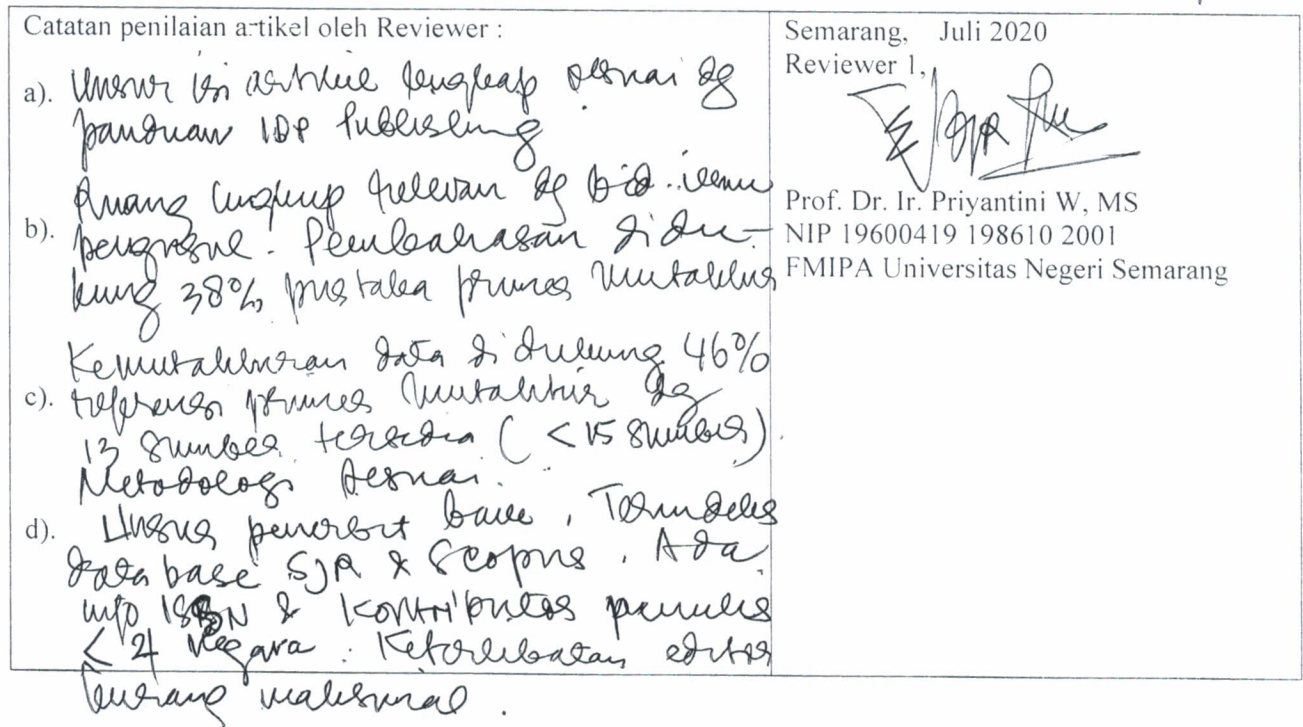 Catatan penilaian artikel oleh Reviewer :
a). Unsur isi artikel lengkap sesuai dg
panduan IOP Publishing
Ruang lingkup relevan dg bid. ilmu
b). pengusul. Pembahasan didu-
kung 38% pustaka primer mutakhir
Kemutakhiran data didukung 46%
c). referensi primer mutakhir dg
13 sumber tersedia ( < 15 sumber)
Metodologi sesuai.
d). Unsur penerbit baik, Terindeks
database SJR & Scopus. Ada
info ISSN & kontributos penulis
< 4 negara. Keterlibatan editor
kurang maksimal.
Semarang, Juli 2020
Reviewer 1,
Prof. Dr. Ir. Priyantini W, MS
NIP 19600419 198610 2001
FMIPA Universitas Negeri Semarang